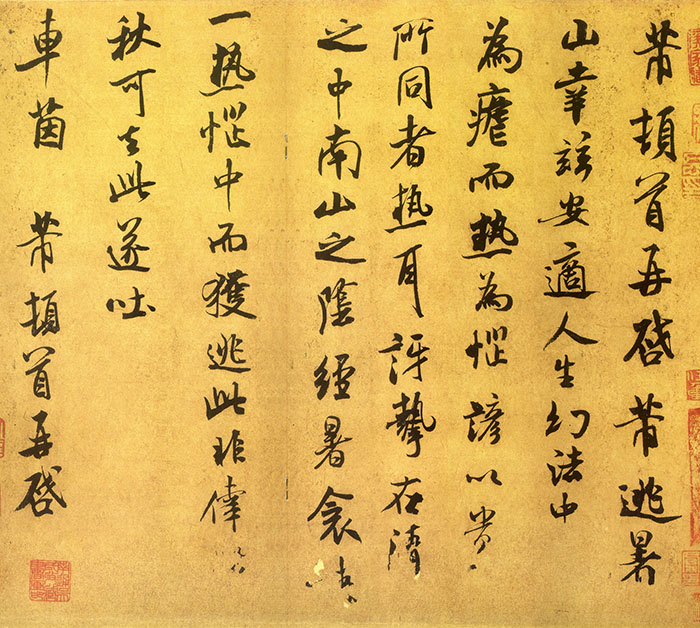 芾頓首再啓芾逃暑
山幸茲安適人生幻法中
為瘧而熱為惱諺以貴
所同者熱耳訝摯在清
之中南山之陰經暑衾
一熱惱中而獲逃此非偉
秋可去此遂吐
車茵 芾頓首再啓